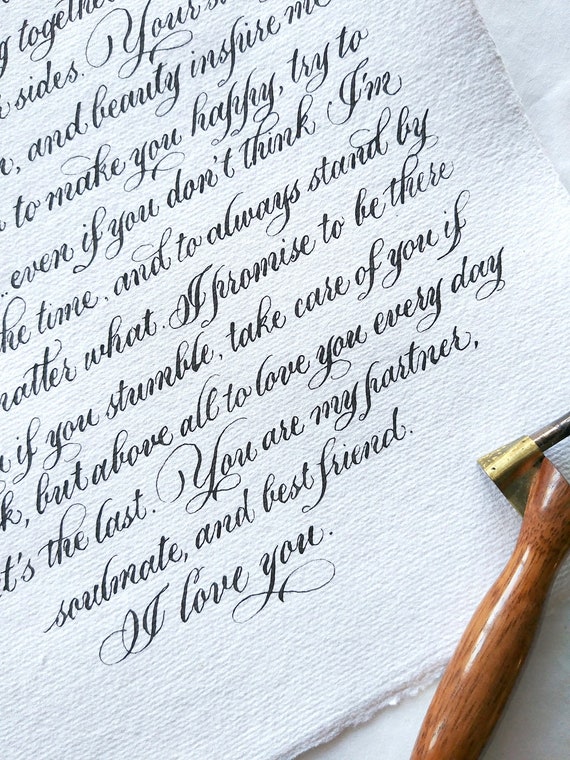 together
sides. Your
, and beauty inspire me
to make you happy, try to
...even if you don't think I'm
the time, and to always stand by
matter what. I promise to be there
if you stumble, take care of you if
, but above all to love you every day
it's the last. You are my partner,
soulmate, and best friend.
I love you.